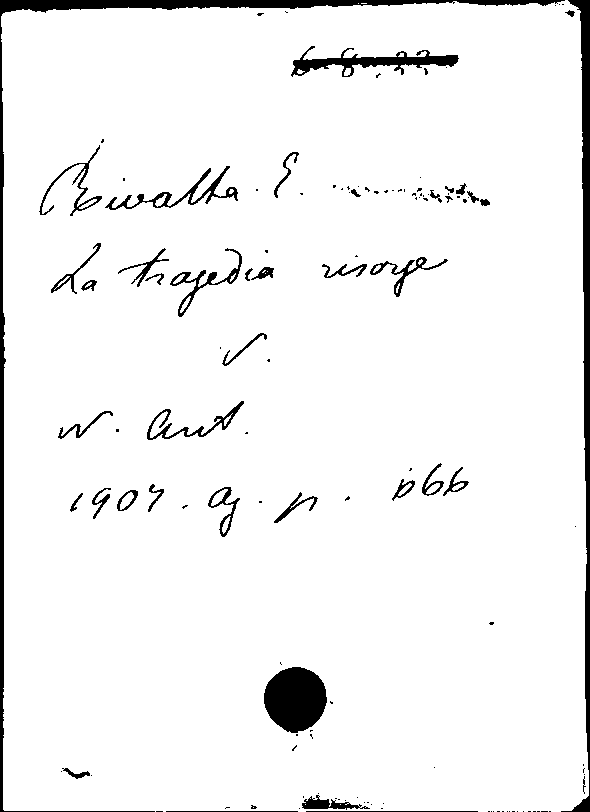 6.8.22
Rivalta E.
La tragedia risorge
V.
N. Ant.
1907. ag. p. 666